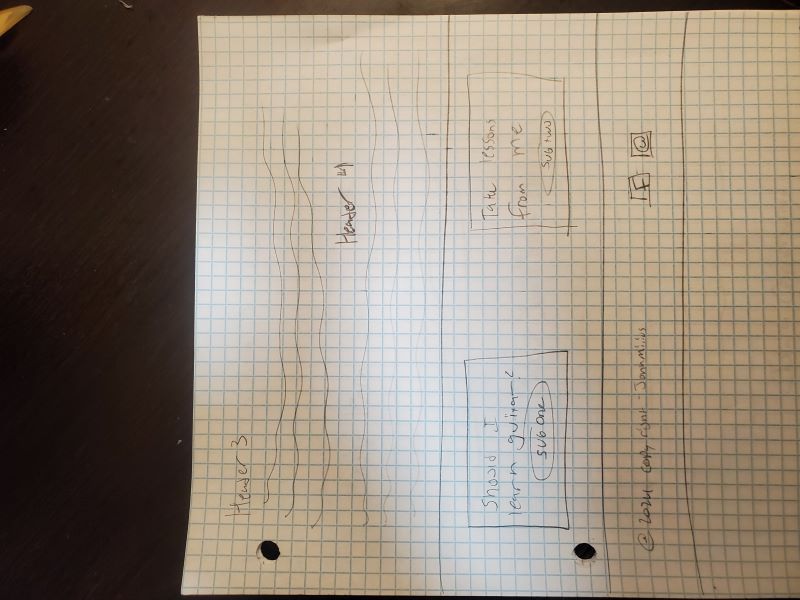 Header 3
Header 4
Should I
learn guitar?
SUB One
Take lessons
from me
SUB two
© 2024 copy right -
F @